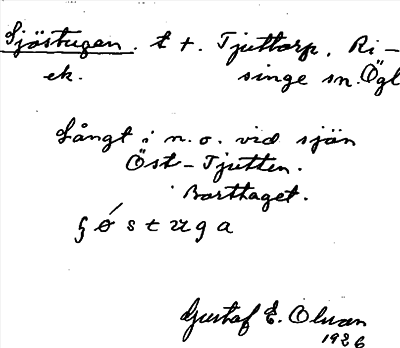 Sjöstugan. t t. Tjuttorp, Ri-
ek. singe sn. Ögl
Långt i n. o. vid sjön
Öst-Tjutten.
Borttaget.
ʂǿstuga
Gustaf E. Olsson
1926